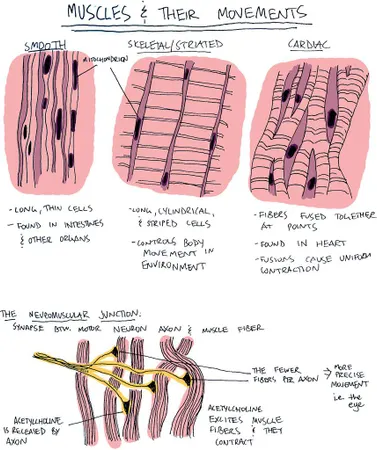 MUSCLES & THEIR MOVEMENTS
SMOOTH
SKELETAL/STRIATED
CARDIAC
MITOCHONDRION
- LONG, THIN CELLS
- FOUND IN INTESTINES
& OTHER ORGANS
- LONG, CYLINDRICAL,
& STRIPED CELLS
- CONTROLS BODY
MOVEMENT IN
ENVIRONMENT
- FIBERS FUSED TOGETHER
AT POINTS
- FOUND IN HEART
- FUSIONS CAUSE UNIFORM
CONTRACTION
THE NEUROMUSCULAR JUNCTION:
SYNAPSE BTW. MOTOR NEURON AXON & MUSCLE FIBER
THE FEWER
FIBERS PER AXON →
MORE
PRECISE
MOVEMENT
i.e. the
eye
ACETYLCHOLINE
IS RELEASED BY
AXON
ACETYLCHOLINE
EXCITES MUSCLE
FIBERS & THEY
CONTRACT